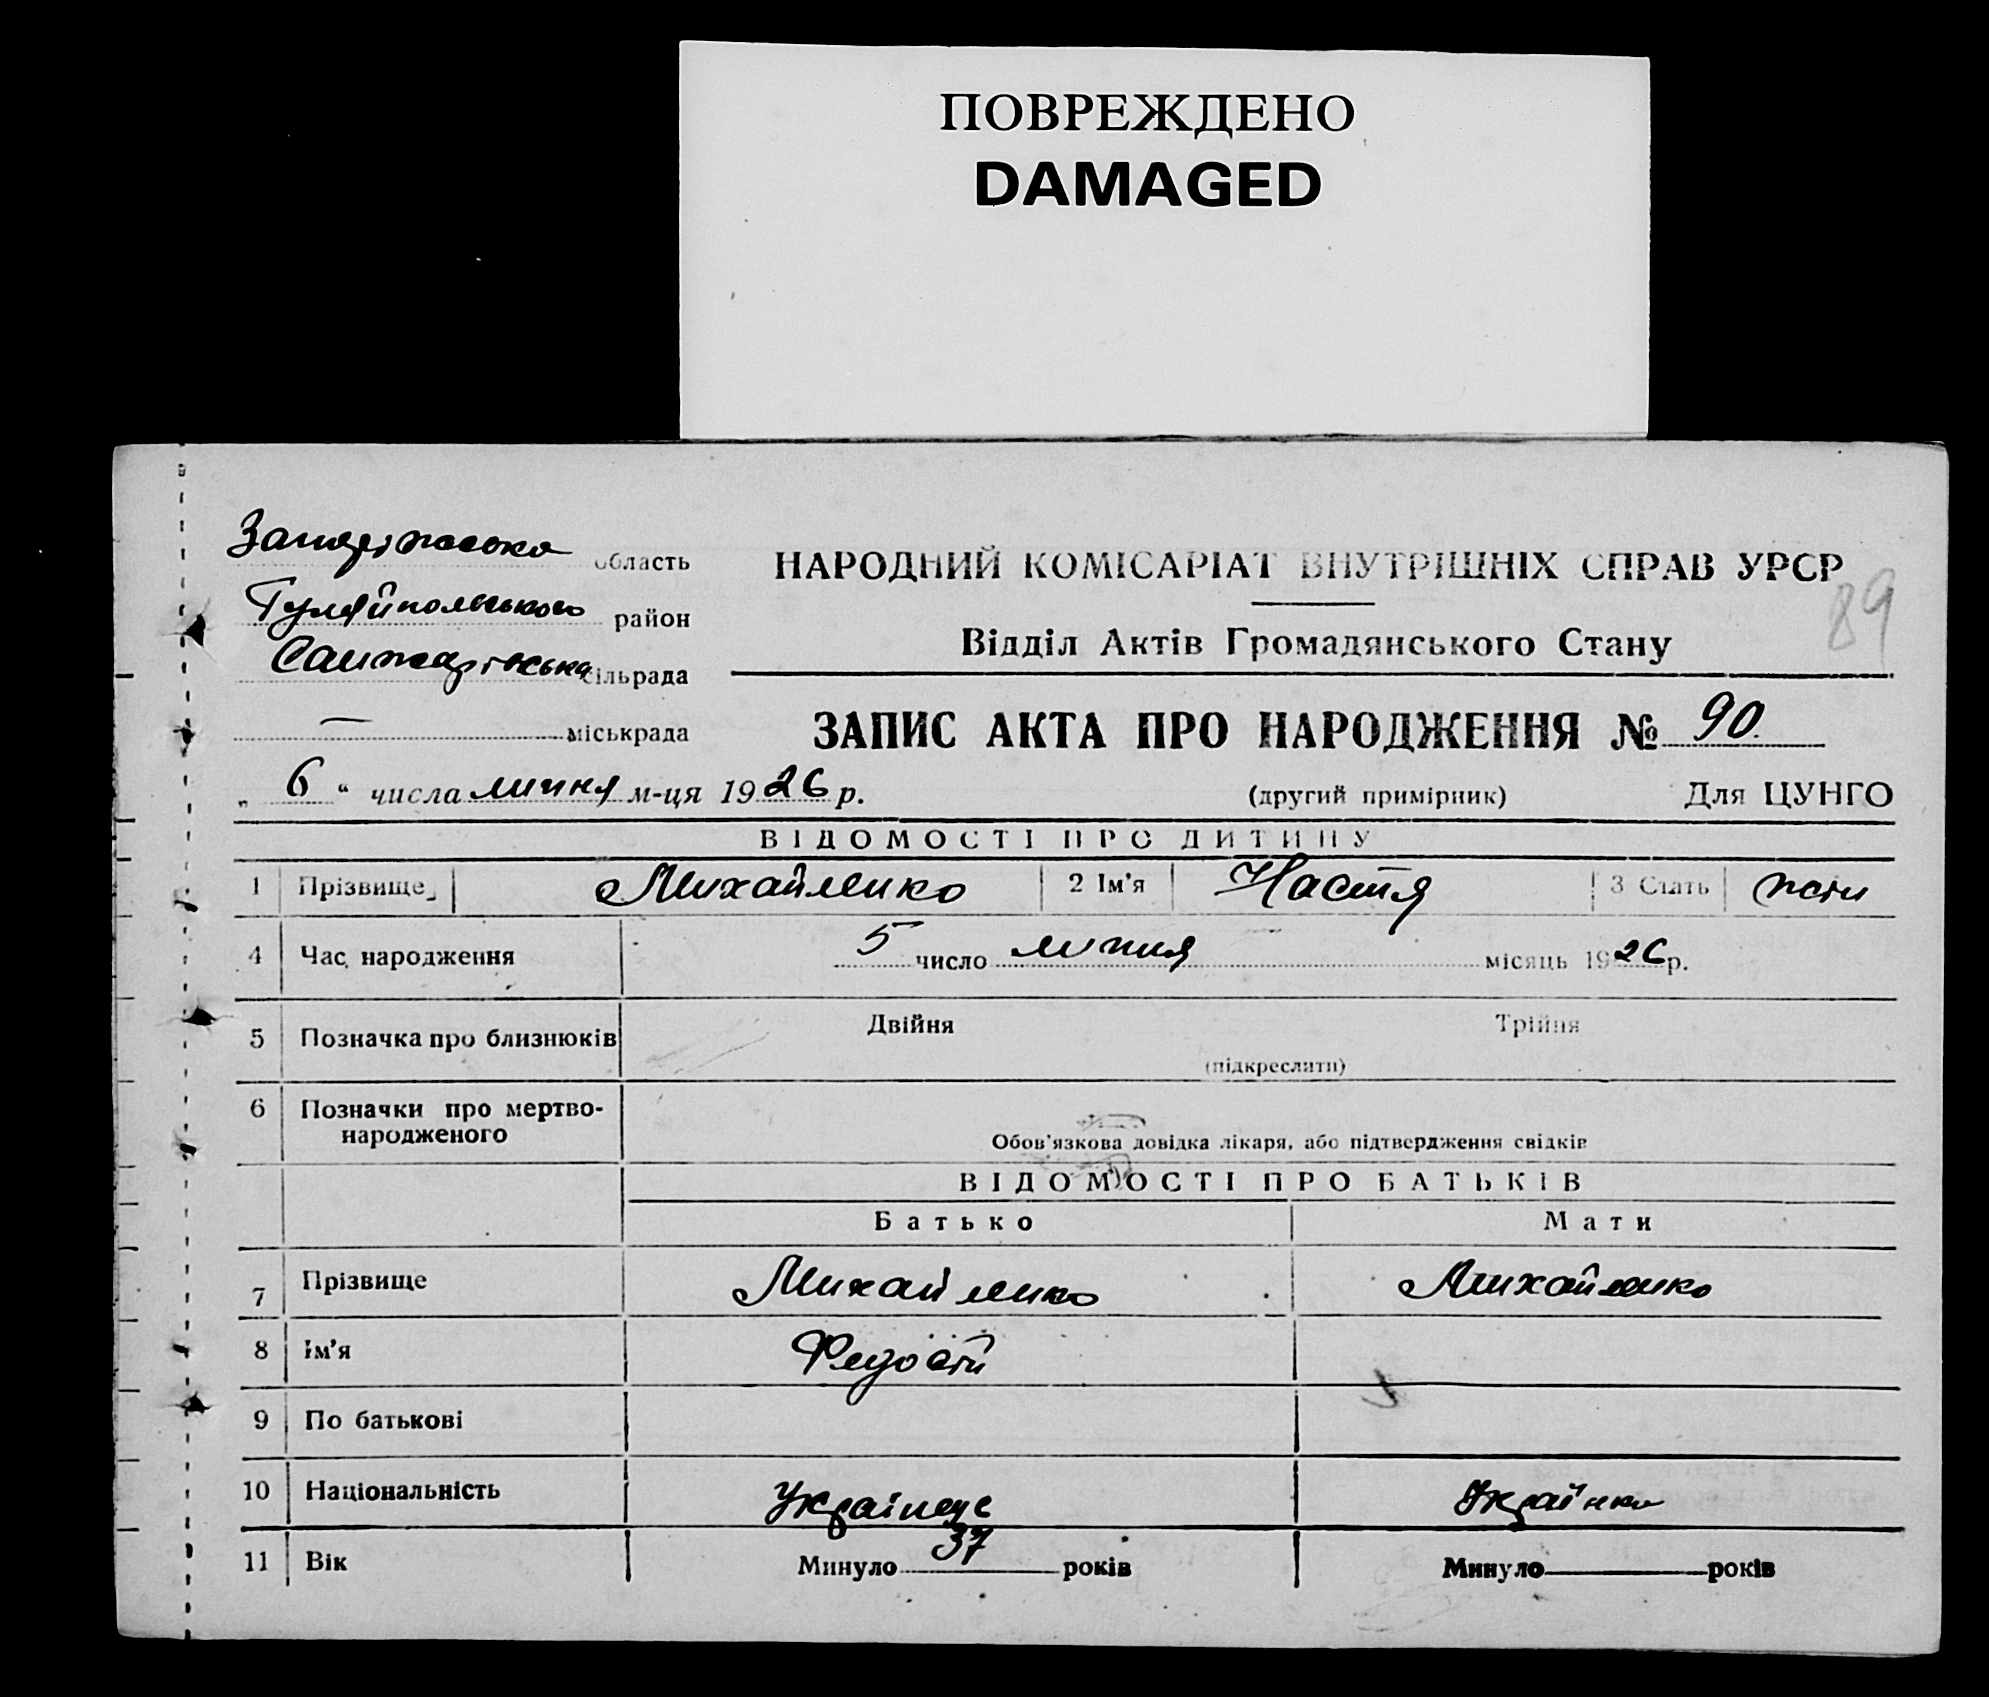 ПОВРЕЖДЕНО
DAMAGED
Запорізська область
Гуляйпольського район
Санжарівська сільрада
— міськрада
НАРОДНИЙ КОМІСАРІАТ ВНУТРІШНІХ СПРАВ УРСР
89
Відділ Актів Громадянського Стану
ЗАПИС АКТА ПРО НАРОДЖЕННЯ № 90
„ 6 “ числа липня м-ця 1926 р. (другий примірник) Для ЦУНГО
ВІДОМОСТІ ПРО ДИТИНУ
1 Прізвище Михайленко 2 Ім’я Настя 3 Стать
4 Час народження 5 число липня місяць 1926 р.
5 Позначка про близнюків Двійня Трійня
(підкреслити)
6 Позначки про мертво-
народженого
Обов’язкова довідка лікаря, або підтвердження свідків
ВІДОМОСТІ ПРО БАТЬКІВ
Батько Мати
7 Прізвище Михайленко Михайленко
8 Ім’я
9 По батькові
10 Національність Українець Українка
11 Вік Минуло 37 років Минуло років